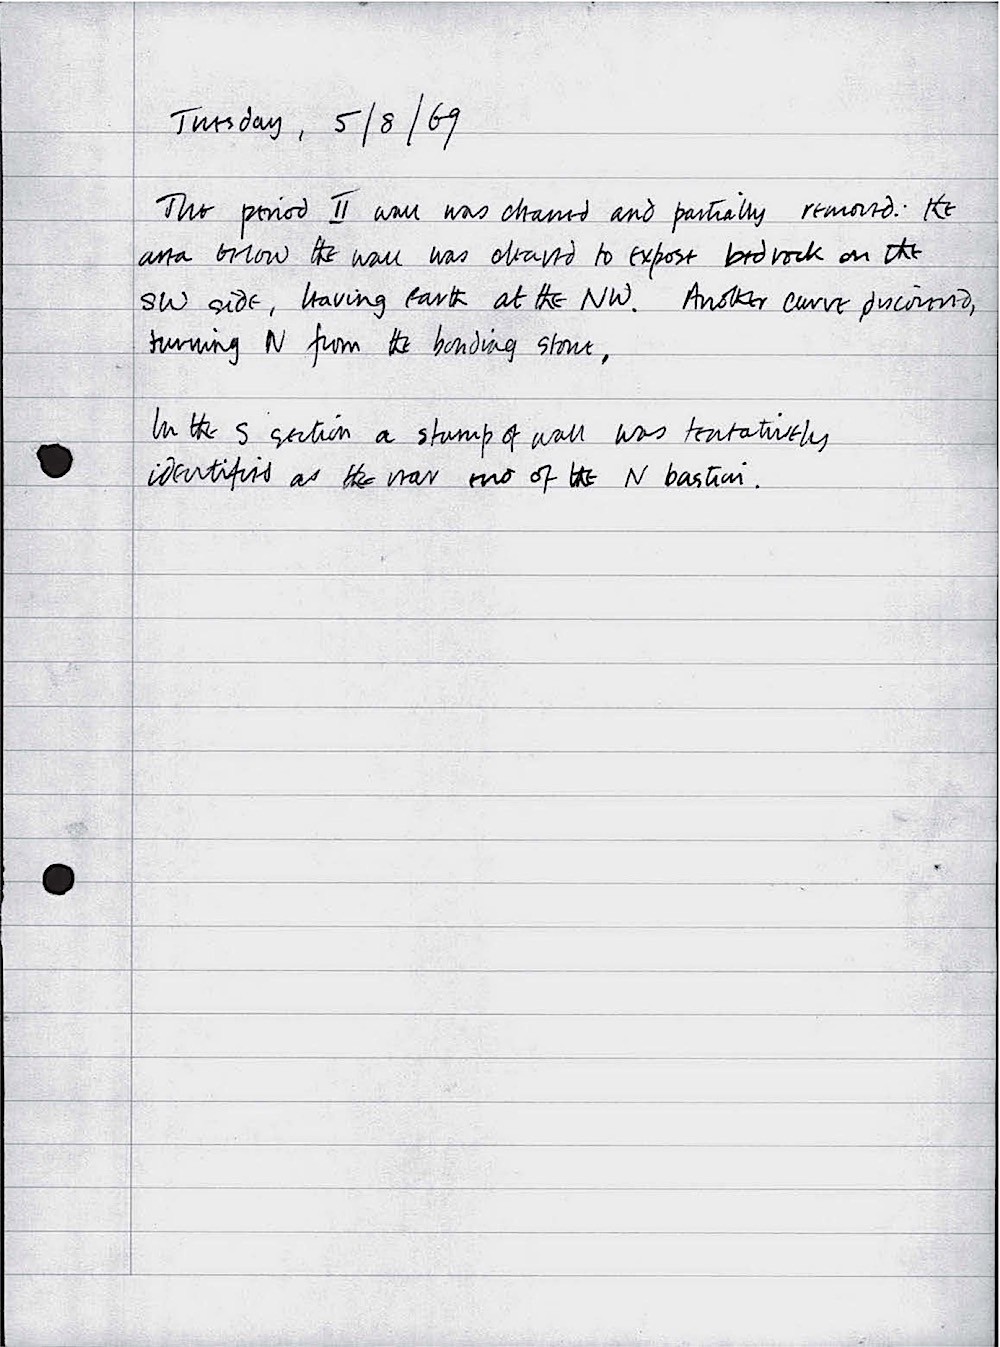 Tuesday, 5/8/69
The period II wall was cleaned and partially removed: the
area below the wall was cleared to expose bedrock on the
SW side, leaving earth at the NW. Another curve discovered,
turning N from the bonding stone.
In the S section a stump of wall was tentatively
identified as the rear end of the N bastion.